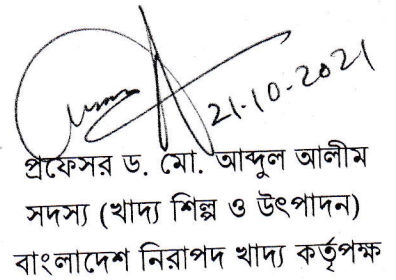 21-10-2021
প্রফেসর ড. মো. আব্দুল আলীম
সদস্য (খাদ্য শিল্প ও উৎপাদন)
বাংলাদেশ নিরাপদ খাদ্য কর্তৃপক্ষ